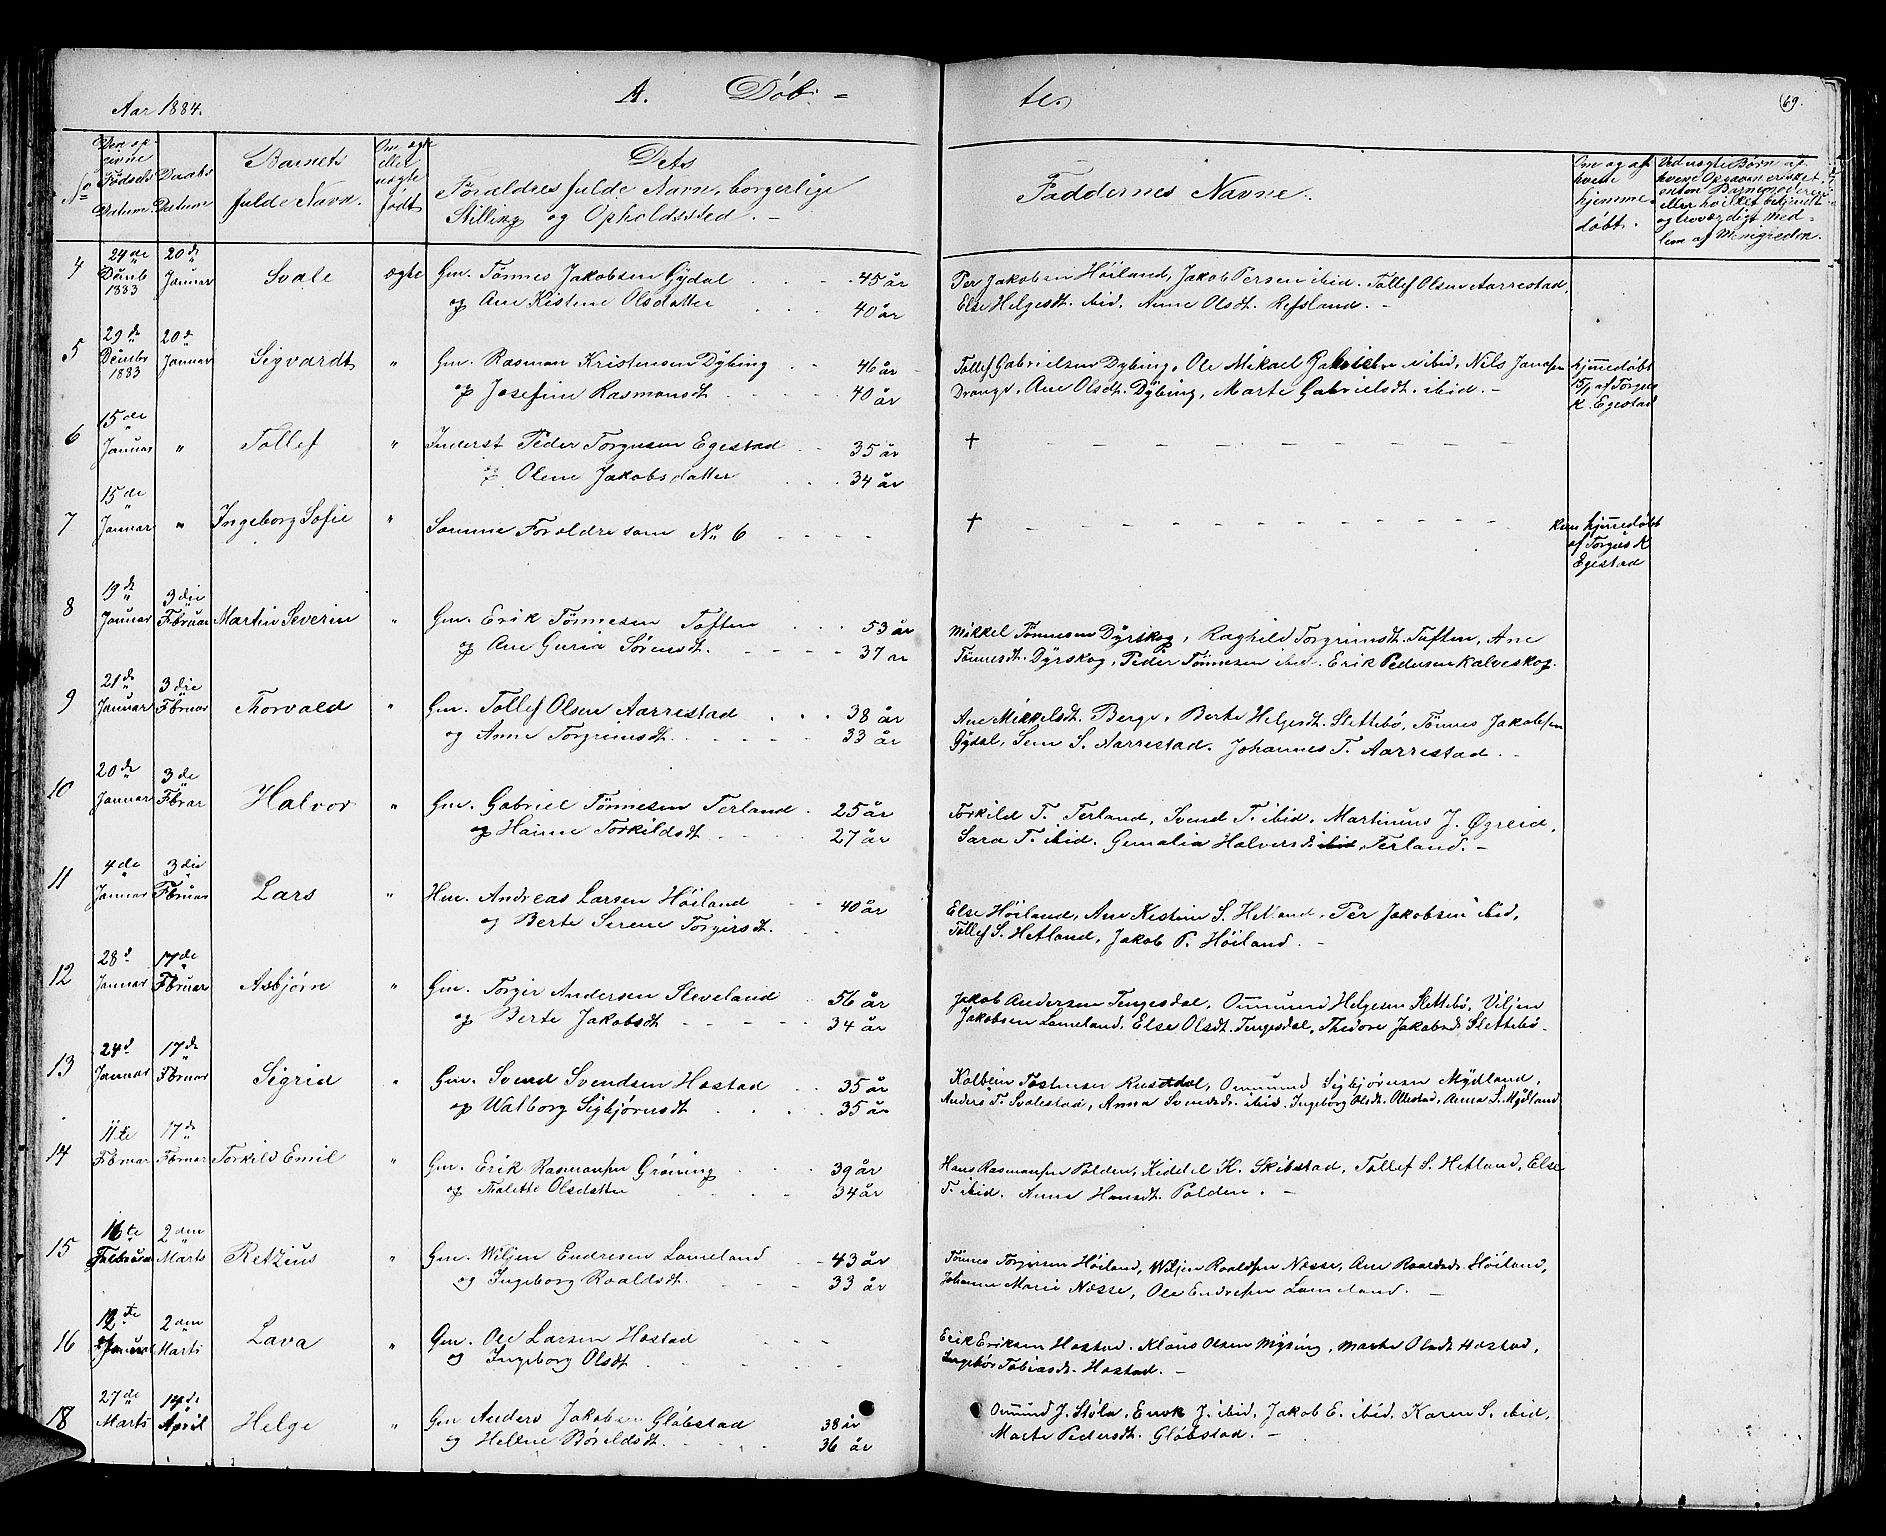 Aar 1884.
A. Døb- te.
69.
No
Den op-
givne
Fødsels
Datum.
Daabs
Datum
Barnets
fulde Navn.
Om ægte
eller
uægte
født
Dets
Forældres fulde Navn, borgerlige
Stilling og Opholdssted. -
Faddernes Navne.
Om og af
hvem
hjemme-
døbt.
4 24de Decmb 1883 20de Januar Svale ægte Gm. Tönnes Jakobsen Gÿdal 45 år
og Ane Kistine Olsdatter 40 år
Per Jakobsen Höiland, Jakob Persen ibid. Tollef Olsen Aarrestad,
Else Helgesdt. ibid. Anne Olsdt. Refsland. -
5 29de Decmbr 1883 20de Januar Sigvardt " Gm. Rasmon Kristensen Dÿbing 46 år
og Josefine Rasmonsdt 40 år
Tollef Gabrielsen Dybing, Ole Mikael ibid, Nils
Drange, Ane Olsdt. Dÿbing, Marte Gabrielsdt. ibid. -
hjemmedøbt
af Torgus
K. Egestad
6 15de Januar " Tollef " Inderst Peder Torgusen Egestad 35 år
og Olene Jakobsdatter 34 år
†
7 15de Januar " Ingeborg Sofie " Samme Foroldre som No 6
†
hjemmedøbt
af Torgus K
Egestad
8 19de Januar 3die Februar Martin Severin " Gm. Erik Tönnesen Toften 53 år
og Ane Guria Sörensdt. 37 år
Mikkel Tönnesen Dÿrskog, Raghild Torgrimsdt. Tuften, Ane
Tönnesdt. Dÿrskog, Peder Tönnesen ibid. Erik Pedersen Kalveskog.
9 21de Januar 3die Februar Thorvald " Gm. Tollef Olsen Aarrestad 38 år
og Anne Torgrimsdt. 33 år
Ane Mikkelsdt. Berge, Berte Helgesdt. Slettebö, Tönnes Jakobsen
Gÿdal, Sem S. Aarrestad. Johannes T. Aarrestad. -
10 20de Januar 3die Februar Halvor " Gm. Gabriel Tönnesen Terland 25 år
og Hanne Torkildsdt 27 år
Torkild T. Terland, Svend T. ibid, Martinus J. Øgreid,
Sara T. ibid. Gemalia Halversdt ibid Terland. -
11 4de Januar 3die Februar Lars " Hm. Andreas Larsen Höiland 40 år
og Berte Serene Torgersdt.
Else Höiland, Ane Kistine S. Hetland, Per Jakobsen ibid,
Tollef S. Hetland, Jakob P. Höiland. -
12 28d Januar 17de Februar Asbjørn " Gm. Torger Andersen Sleveland 56 år
og Berte Jakobsdt 34 år
Jakob Andersen Tengesdal, Ommund Helgesen Slettebö, Viljen
Jakobsen Lomeland, Else Olsdt. Tengesdal, Thedore Jakobsdt Slettebö.
13 24d Januar 17de Februar Sigrid " Gm. Svend Svendsen Hostad 35 år
og Walborg Sigbjørnsdt 35 år
Kolbein Tostensen Rusdal, Ommund Sigbjørnsen Mÿdland,
Anders T. Svalestad, Anna Svendsdt. ibid. Ingeborg Olsdt. Ollestad, Anna S. Mÿdland
14 11te Februar 17de Februar Torkild Emil " Gm. Erik Rasmonsen Gröning 39 år
og Malette Olsdatter 34 år
Hans Rasmonsen Polden, Kiddel K. Skibstad, Tollef S. Hetland, Else
T. ibid. Anna Hansdt. Polden. -
15 16te Februar 2den Marts Retzius " Gm. Wiljen Endresen Lomeland 43 år
og Ingeborg Roaldsdt. 33 år
Tönnes Torgersen Höiland, Wiljen Roaldsen Nosse, Ane Roaldsdt. Höiland,
Johanne Marie Nosse, Ole Endresen Lomeland. -
16 12te 2den Marts Lava " Gm. Ole Larsen Hostad
og Ingeborg Olsdt
Erik Eriksen Hostad. Klaus Olsen Mÿsing, Marte Olsdt Hostad,
Ingebor Tobiasdt. Hostad. -
18 27de Marts 14de April Helge " Gm Anders Jakobsen Glöbstad 38 år
og Helene Böreldsdt. 36 år
Ommund J. Stöle, Enok J. ibid, Jakob E. ibid. Karen S. ibid,
Marte Pedersdt. Glöbstad. -